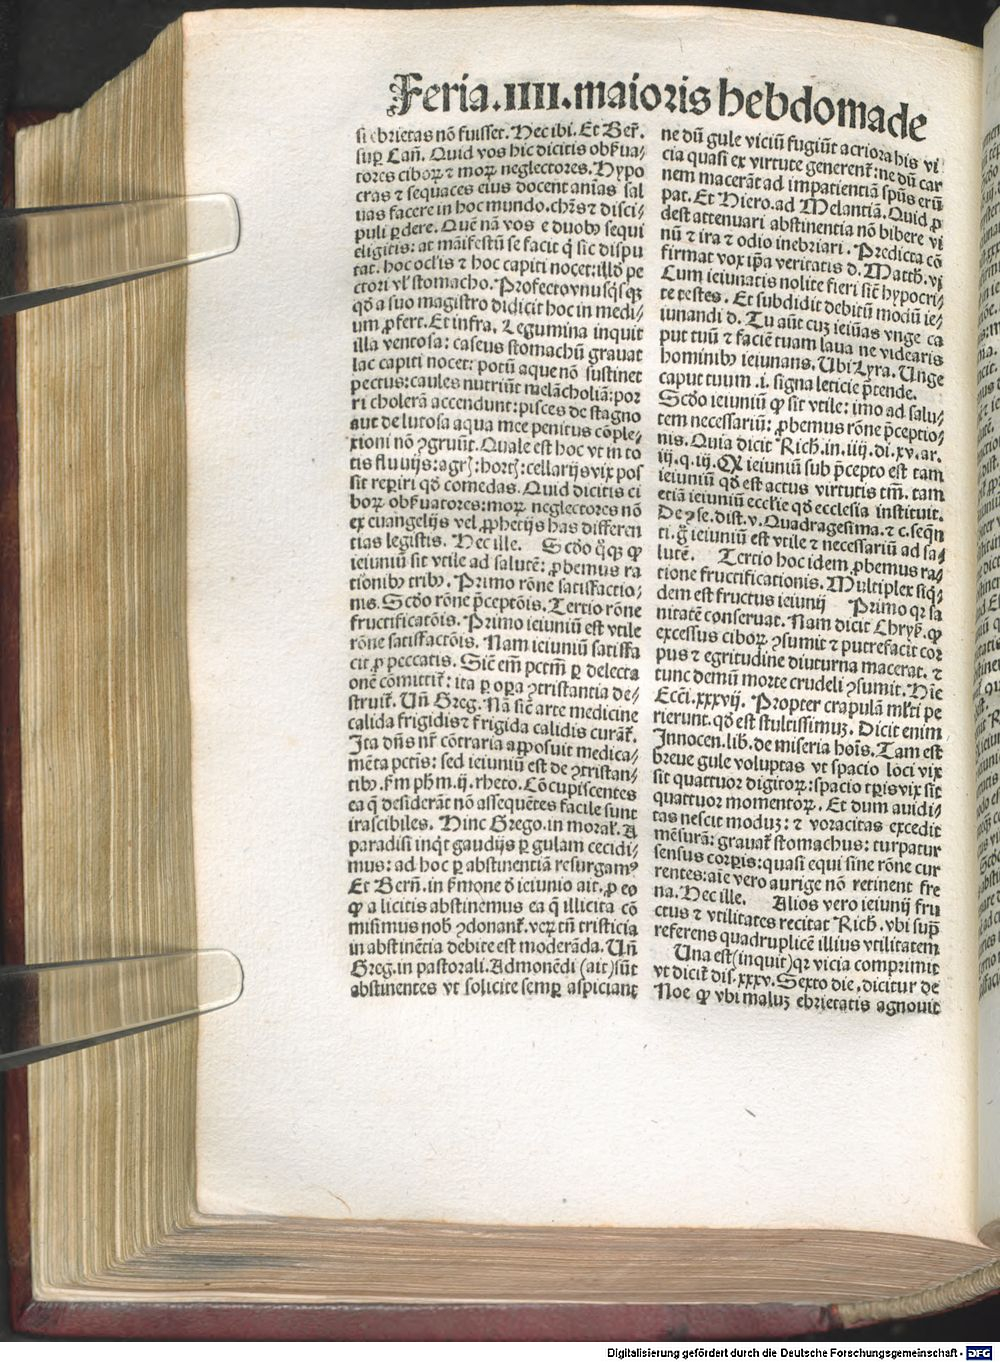 Feria.IIII.maioris hebdomade
si ebrietas nō fuisset. Hec ibi. Et Ber̄.
sup̱ Can̄. Quid vos hic dicitis obẜua/
tores ciboꝝ ⁊ moꝝ neglectores. Hypo
cras ⁊ sequaces eius docent anīas sal
uas facere in hoc mundo. chr̄s ⁊ disci/
puli ꝑdere. Quē nā vos e duobꝰ sequi
eligitis: at māifestū se facit ꝙ sic dispu
tat. hoc ocl̓is ⁊ hoc capiti nocet: illd̓ pe
ctori vl̓ stomacho. Profecto vnusq̓sꝗ
qd̓ a suo magistro didicit hoc in medi/
um ꝓfert. Et infra. Legumina inquit
illa ventosa: caseus stomachū grauat
lac capiti nocet: potū aque nō sustinet
pectus: caules nutriūt melācholiā: por
ri cholerā accendunt: pisces de stagno
aut de lutosa aqua mee penitus cōple/
xioni nō ꝯgruūt. Quale est hoc vt in to
tis fluuijs: agrꝭ: hortꝭ: cellarijs vix pos
sit reꝑiri qd̓ comedas. Quid dicitis ci
boꝝ obẜuatores: moꝝ neglectores nō
ex euangelijs vel ꝓphetijs has differen
tias legistis. Hec ille. Scd̓o q̓ꝗ ꝙ
ieiuniū sit vtile ad salutē: ꝓbemus ra
tionibꝰ tribꝰ. Primo rōne satisfactio/
nis. Scd̓o rōne p̄ceptōis. Tertio rōne
fructificatōis. Primo ieiuniū est vtile
rōne satisfactōis. Nam ieiuniū satisfa
cit ꝓ peccatis. Sic̄ em̄ pctm̄ ꝑ delecta
onē cōmittit̃: ita ꝑ oꝑa ꝯtristantia de/
struit̃. Un̄ Greg. Nā sic̄ arte medicine
calida frigidis ⁊ frigida calidis curāt̃.
Ita dn̄s nr̄ cōtraria apposuit medica/
mēta pctis: sed ieiuniū est de ꝯtristan/
tibꝰ. ẜm ph̓m. ij. rheto. Cōcupiscentes
ea q̄ desiderāt nō assequētes facile sunt
irascibiles. Hinc Grego. in moral̓. A
paradisi inq̓t gaudijs ꝑ gulam cecidi/
mus: ad hoc ꝑ abstinentiā resurgamꝰ
Et Bern̄. in ẜmone d̓ ieiunio ait. ꝓ eo
ꝙ a licitis abstinemus ea q̄ illicita cō
misimus nob̓ ꝯdonant̃. veꝝ tn̄ tristicia
in abstinētia debite est moderāda. Un̄
Greg. in pastorali. Admonēdi (ait) sūt
abstinentes vt solicite semꝑ aspiciant
ne dū gule viciū fugiūt acriora his vi
cia quasi ex virtute generent̃: ne dū car
nem macerāt ad impatientiā sp̄us erū
pat. Et Hiero. ad Melantiā. Quid ꝓ
dest attenuari abstinentia nō bibere vi
nū ⁊ ira ⁊ odio inebriari. Predicta cō
firmat vox ip̄a veritatis d. Matth. vj
Cum ieiunatis nolite fieri sic̄ hypocri/
te testes. Et subdidit debitū modū ie/
iunandi d. Tu aūt cuꝫ ieiūas vnge ca
put tuū ⁊ faciē tuam laua ne videaris
hominibꝰ ieiunans. Ubi Lyra. Unge
caput tuum .i. signa leticie p̄tende.
Scd̓o ieiuniū ꝙ sit vtile: imo ad salu/
tem necessariū: ꝓbemus rōne p̄ceptio/
nis. Quia dicit Rich̓. in. iiij. di. xv. ar.
iij. q. iij. Ꝙ ieiuniū sub p̄cepto est tam
ieiuniū qd̓ est actus virtutis tm̄. tam
etiā ieiuniū eccl̓ie qd̓ ecclesia instituit.
De ꝯse. dist. v. Quadragesima. ⁊ c. seq̄n
ti. g̊ ieiuniū est vtile ⁊ necessariū ad sa/
lutē. Tertio hoc idem ꝓbemus ra/
tione fructificationis. Multiplex siq̓/
dem est fructus ieiunij Primo qꝛ sa
nitatē conseruat. Nam dicit Chryẜ. ꝙ
excessus ciboꝝ ꝯsumit ⁊ putrefacit cor
pus ⁊ egritudine diuturna macerat. ⁊
tunc demū morte crudeli ꝯsumit. Hīc
Ecci. xxxvij. Propter crapulā ml̓ti pe
rierunt. qd̓ est stultissimuꝫ. Dicit enim
Innocen. lib. de miseria hoīs. Tam est
breue gule voluptas vt spacio loci vix
sit quattuor digitoꝝ: spacio tꝑis vix sit
quattuor momentoꝝ. Et dum auidi/
tas nescit moduꝫ: ⁊ voracitas excedit
mēsurā: grauat̃ stomachus: turpatur
sensus corꝑis: quasi equi sine rōne cur
rentes: aīe vero aurige nō retinent fre
na. Hec ille. Alios vero ieiunij fru
ctus ⁊ vtilitates recitat Rich̓. vbi sup̄
referens quadruplicē illius vtilitatem
Una est (inquit) qꝛ vicia comprimit
vt dicit̃ dis. xxxv. Sexto die. dicitur de
Noe ꝙ vbi maluꝫ ebrietatis agnouit
Digitalisierung gefördert durch die Deutsche Forschungsgemeinschaft - DFG